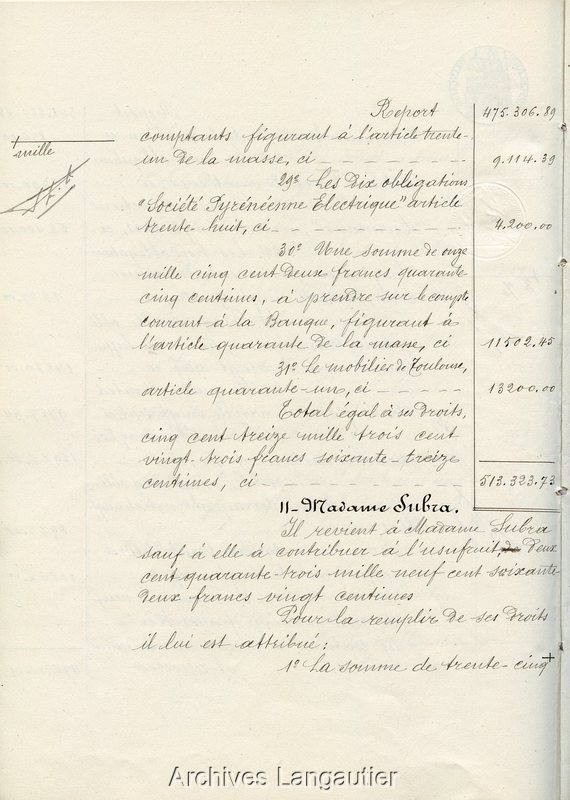 Report 475.306.89
comptants figurant à l'article trente-
mille
un de la masse, ci 9.114.39
29º Les Dix obligations
"Société Pyrénéenne Electrique" article
trente huit, ci 4.200.00
30º Une somme de onze
mille cinq cent deux francs quarante
cinq centimes, à prendre sur le compte
courant à la Banque, figurant à
l'article quarante de la masse, ci 11502.45
31º Le mobilier de Toulouse,
article quarante-un, ci 13200.00
Total égal à ses droits,
cinq cent treize mille trois cent
vingt-trois francs soixante-treize
centimes, ci 513.323.73
II- Madame Subra.
Il revient à Madame Subra
sauf à elle à contribuer à l'usufruit, Deux
cent quarante-trois mille neuf cent soixante-
deux francs vingt centimes
Pour la remplir de ses droits
il lui est attribué:
1º La somme de trente-cinq +
Archives Langautier